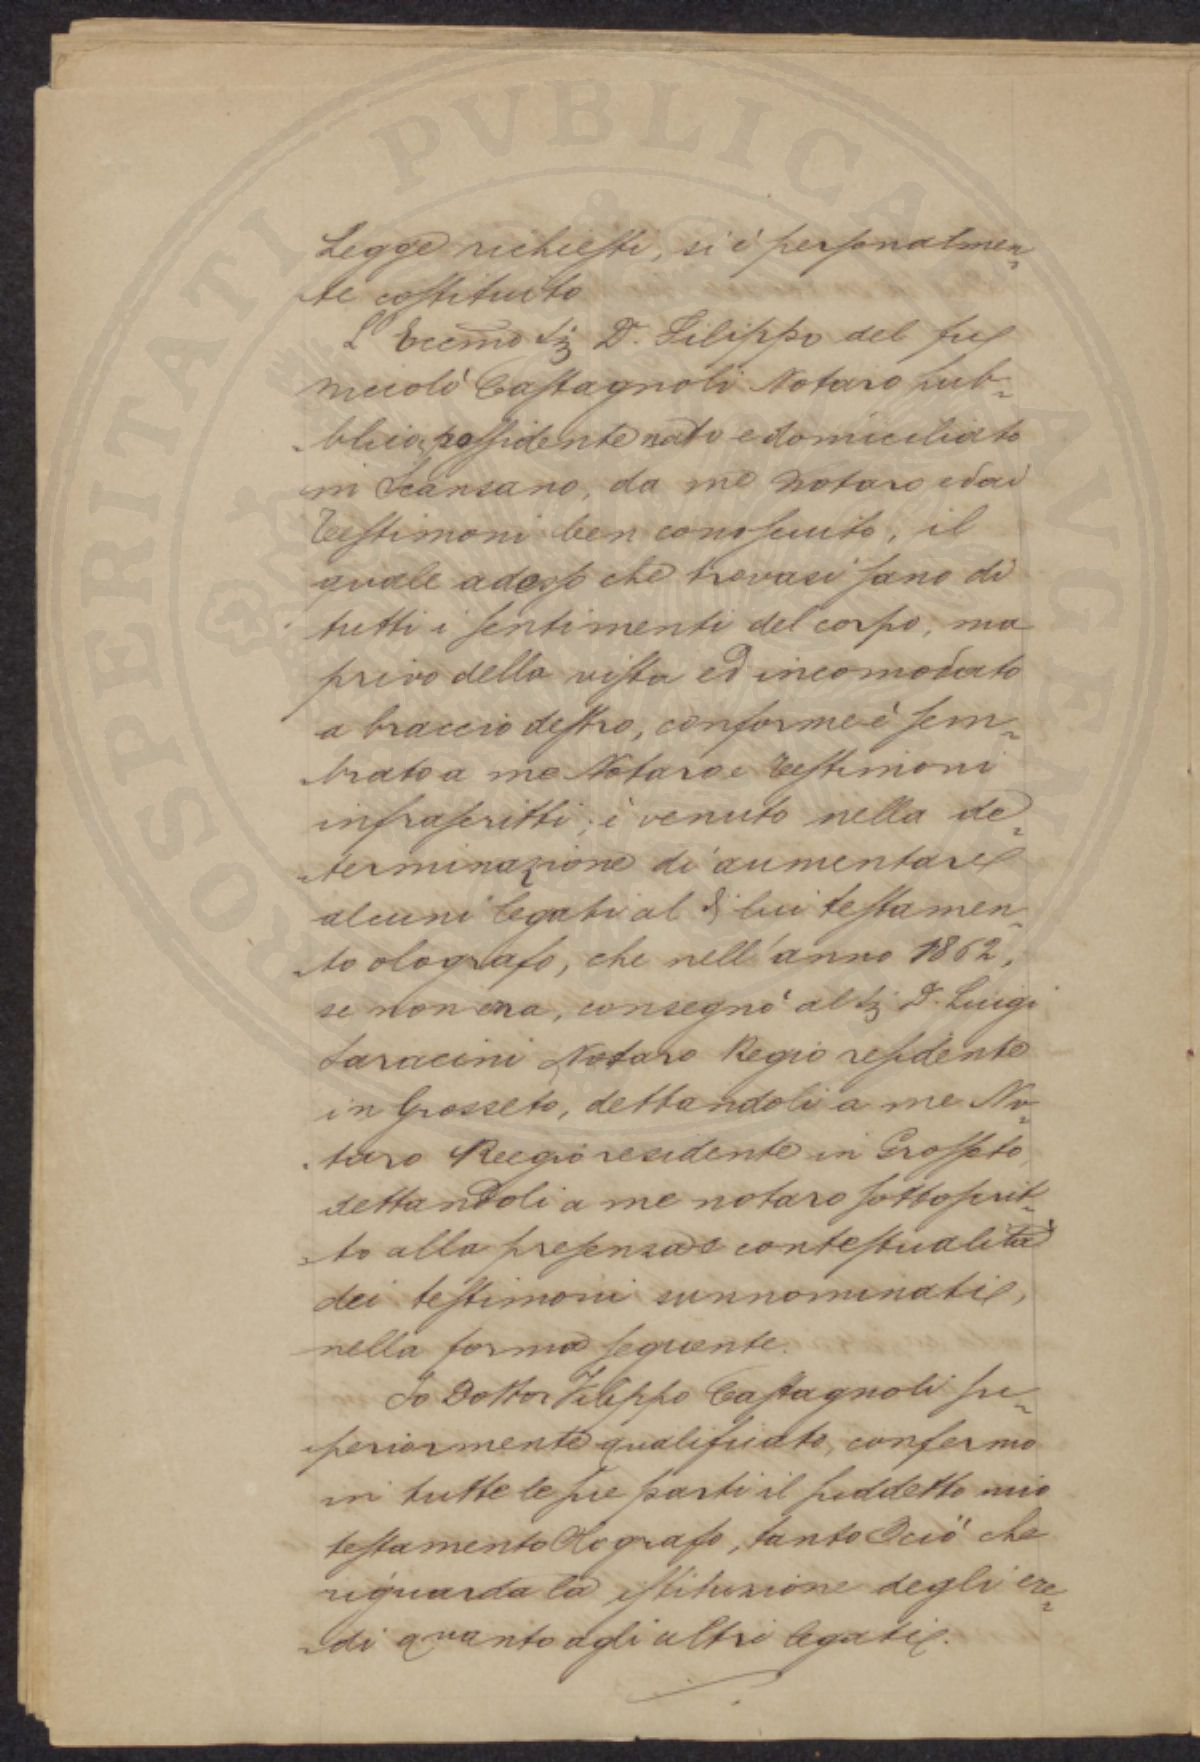 Legge richiesti, si è personalmen-
te costituito
L'Eccmo Sig D. Filippo del fu
Niccolò Castagnoli Notaro pub-
blico, possidente nato e domiciliato
in Scansano, da me Notaro e dai
Testimoni ben conosciuto, il
quale adesso che trovasi sano di
tutti i sentimenti del corpo, ma
privo della vista ed incomodato
a braccio destro, conforme è sem-
brato a me Notaro e Testimoni
infrascritti, è venuto nella de-
terminazione di aumentare
alcuni legati al di lui testamen-
to olografo, che nell'anno 1862,
se non era, consegnò al Sig D. Luigi
Saracini Notaro Regio residente
in Grosseto, dettandoli a me No-
taro Reegio residente in Grosseto,
dettandoli a me notaro sottoscrit-
to alla presenza e contestualità
dei testimoni sunnominati,
nella forma seguente.
Io Dottor Filippo Castagnoli su-
periormente qualificato, confermo
in tutte le sue parti il suddetto mio
testamento Olografo, tanto ciò che
riguarda la istituzione degli ere-
di quanto agli altri legati.
PROSPERITATI PVBLICAE AVGENDAE